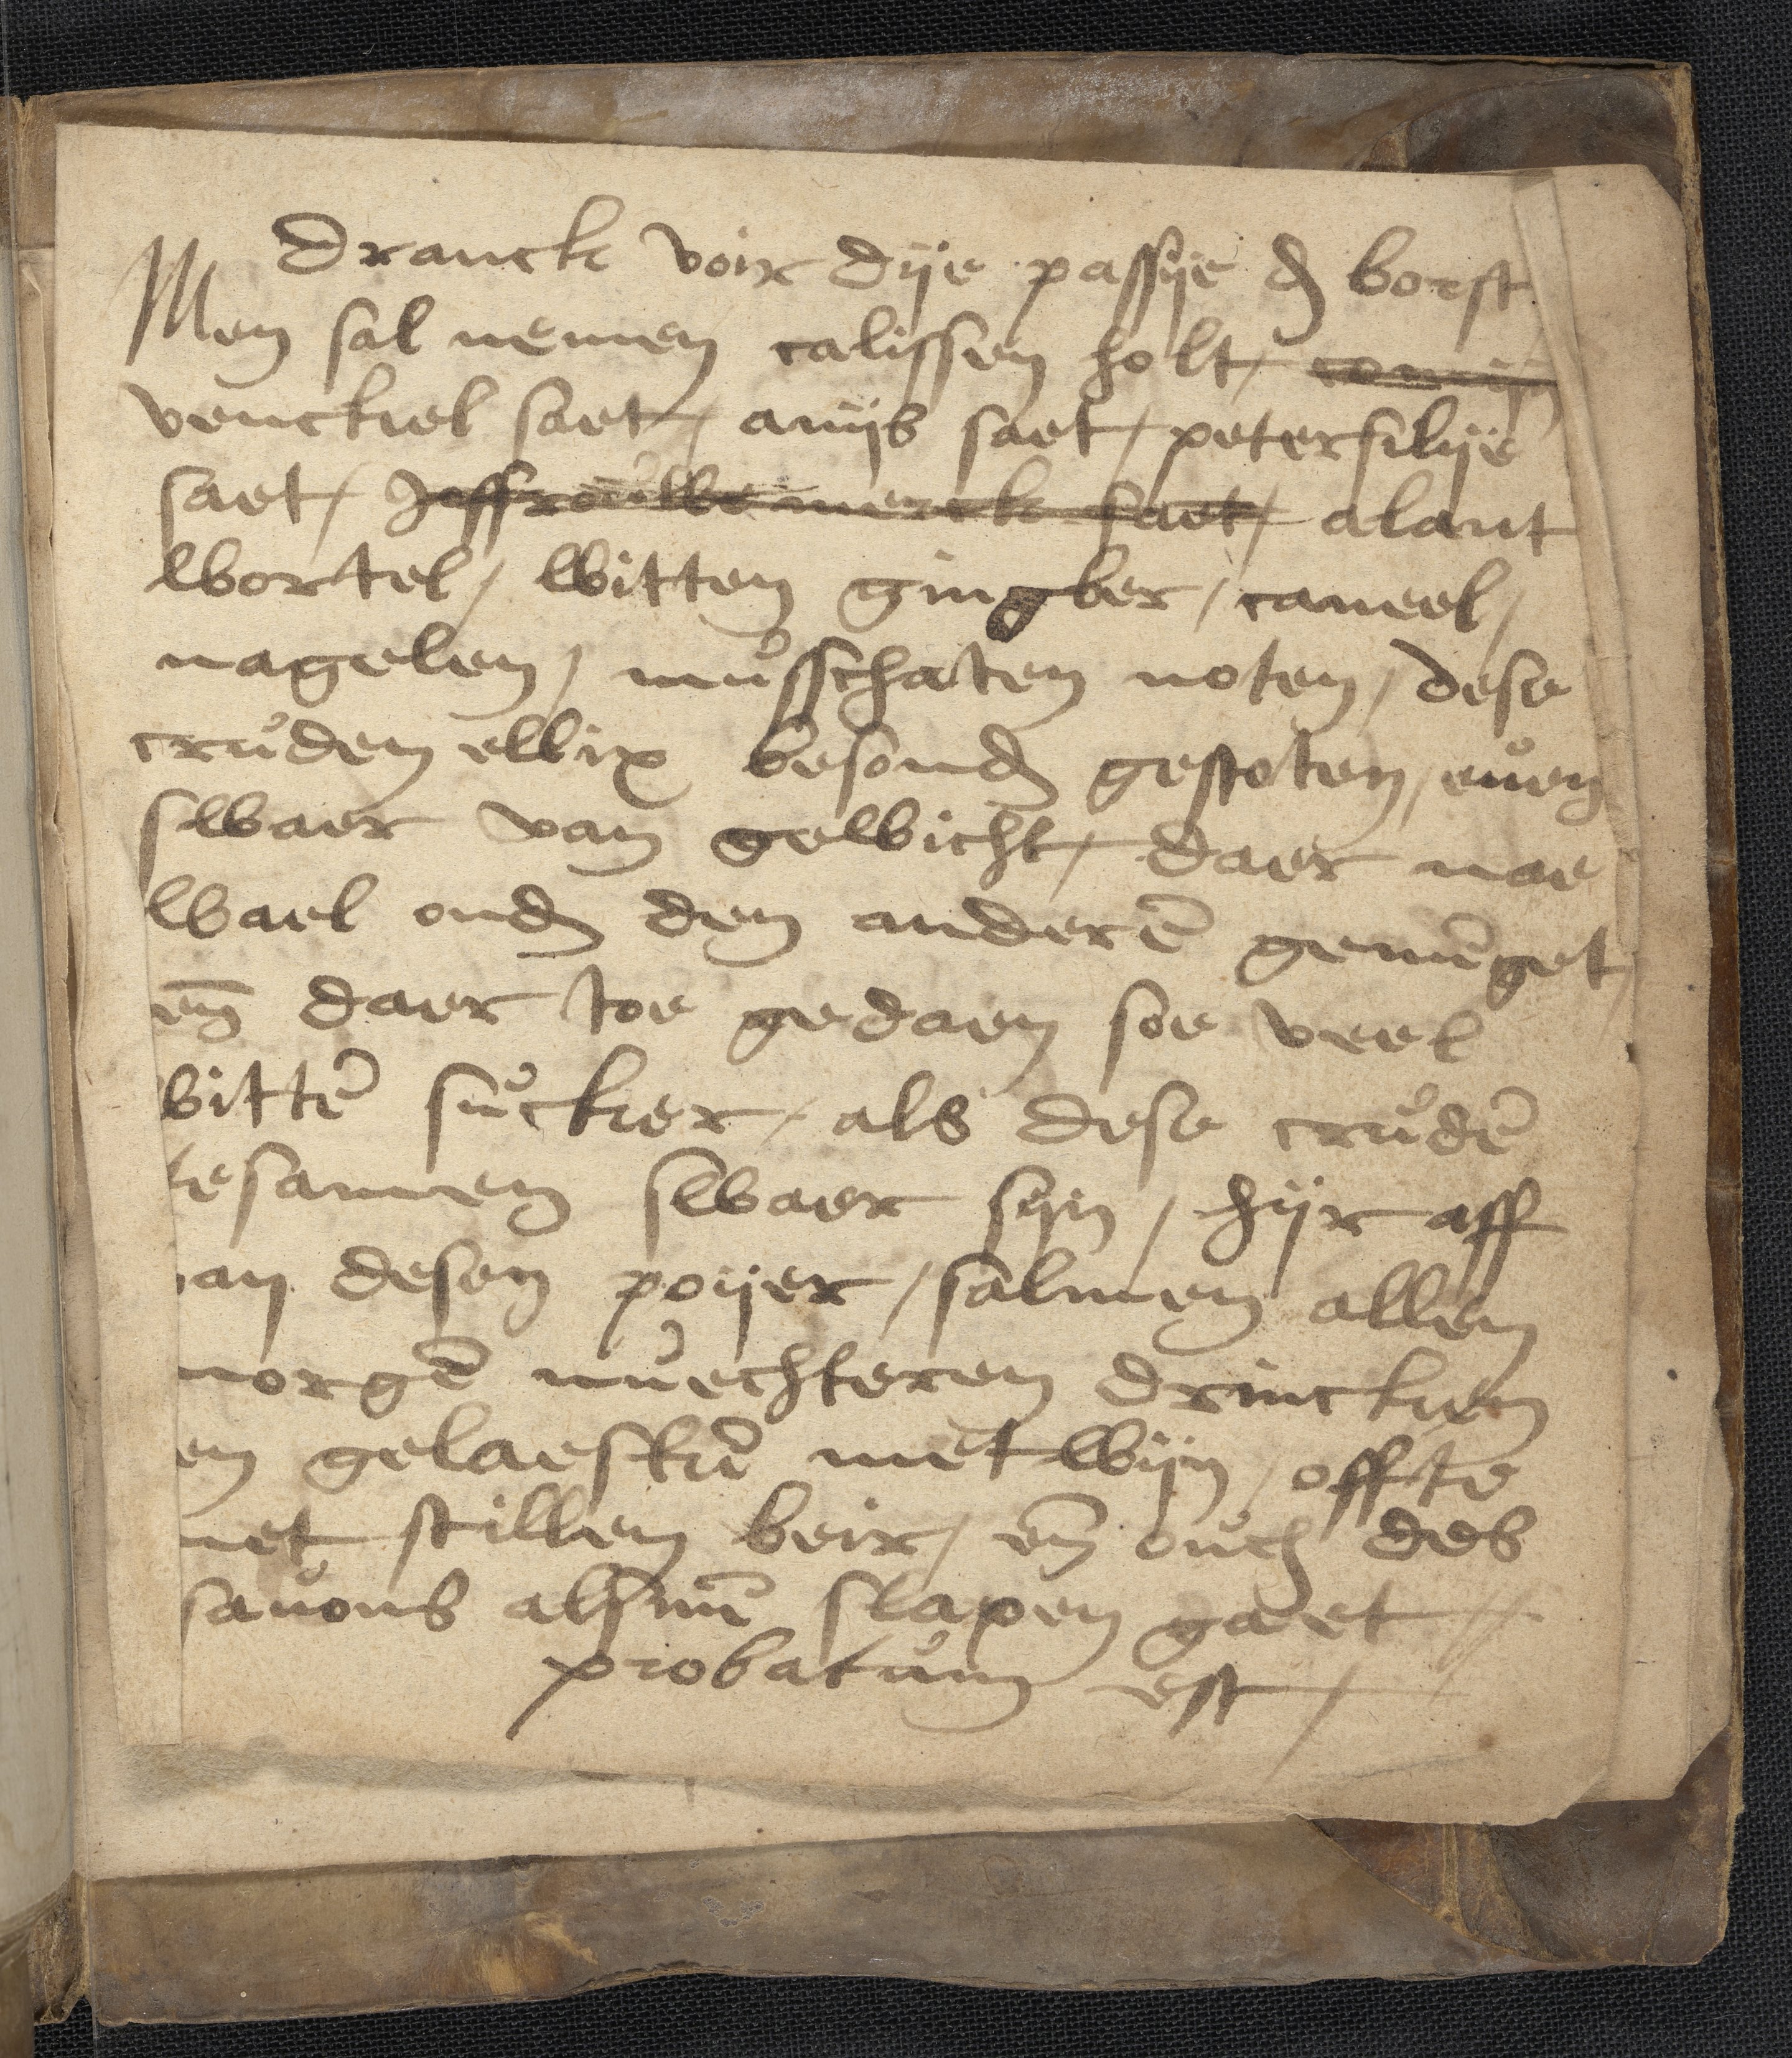 Dranck voir dije passije d' borst
Men sal nemen calissen holt / comijn
venckiel saet / anijs saet / petersilije
saet / Joffrouwe merck saet / alant
wortel / witten gingber / caneel /
nagelen / můsschaten noten / dese
crůden ellix besond' gestoten / eůen
swaer van gewicht / daer nae
wael ond' den anderē gemēget
eñ daer toe gedaen soe veel
wittē sůcker / als dese crůdē
tesamen swaer syn / hijr aff
van desen poijer / salmen allen
morgē nuechteren drincken
en gelaeskē met wijn / offte
met stillen beir / eñ oůch des
saůons alsmē slapen gaet //
probatům est /